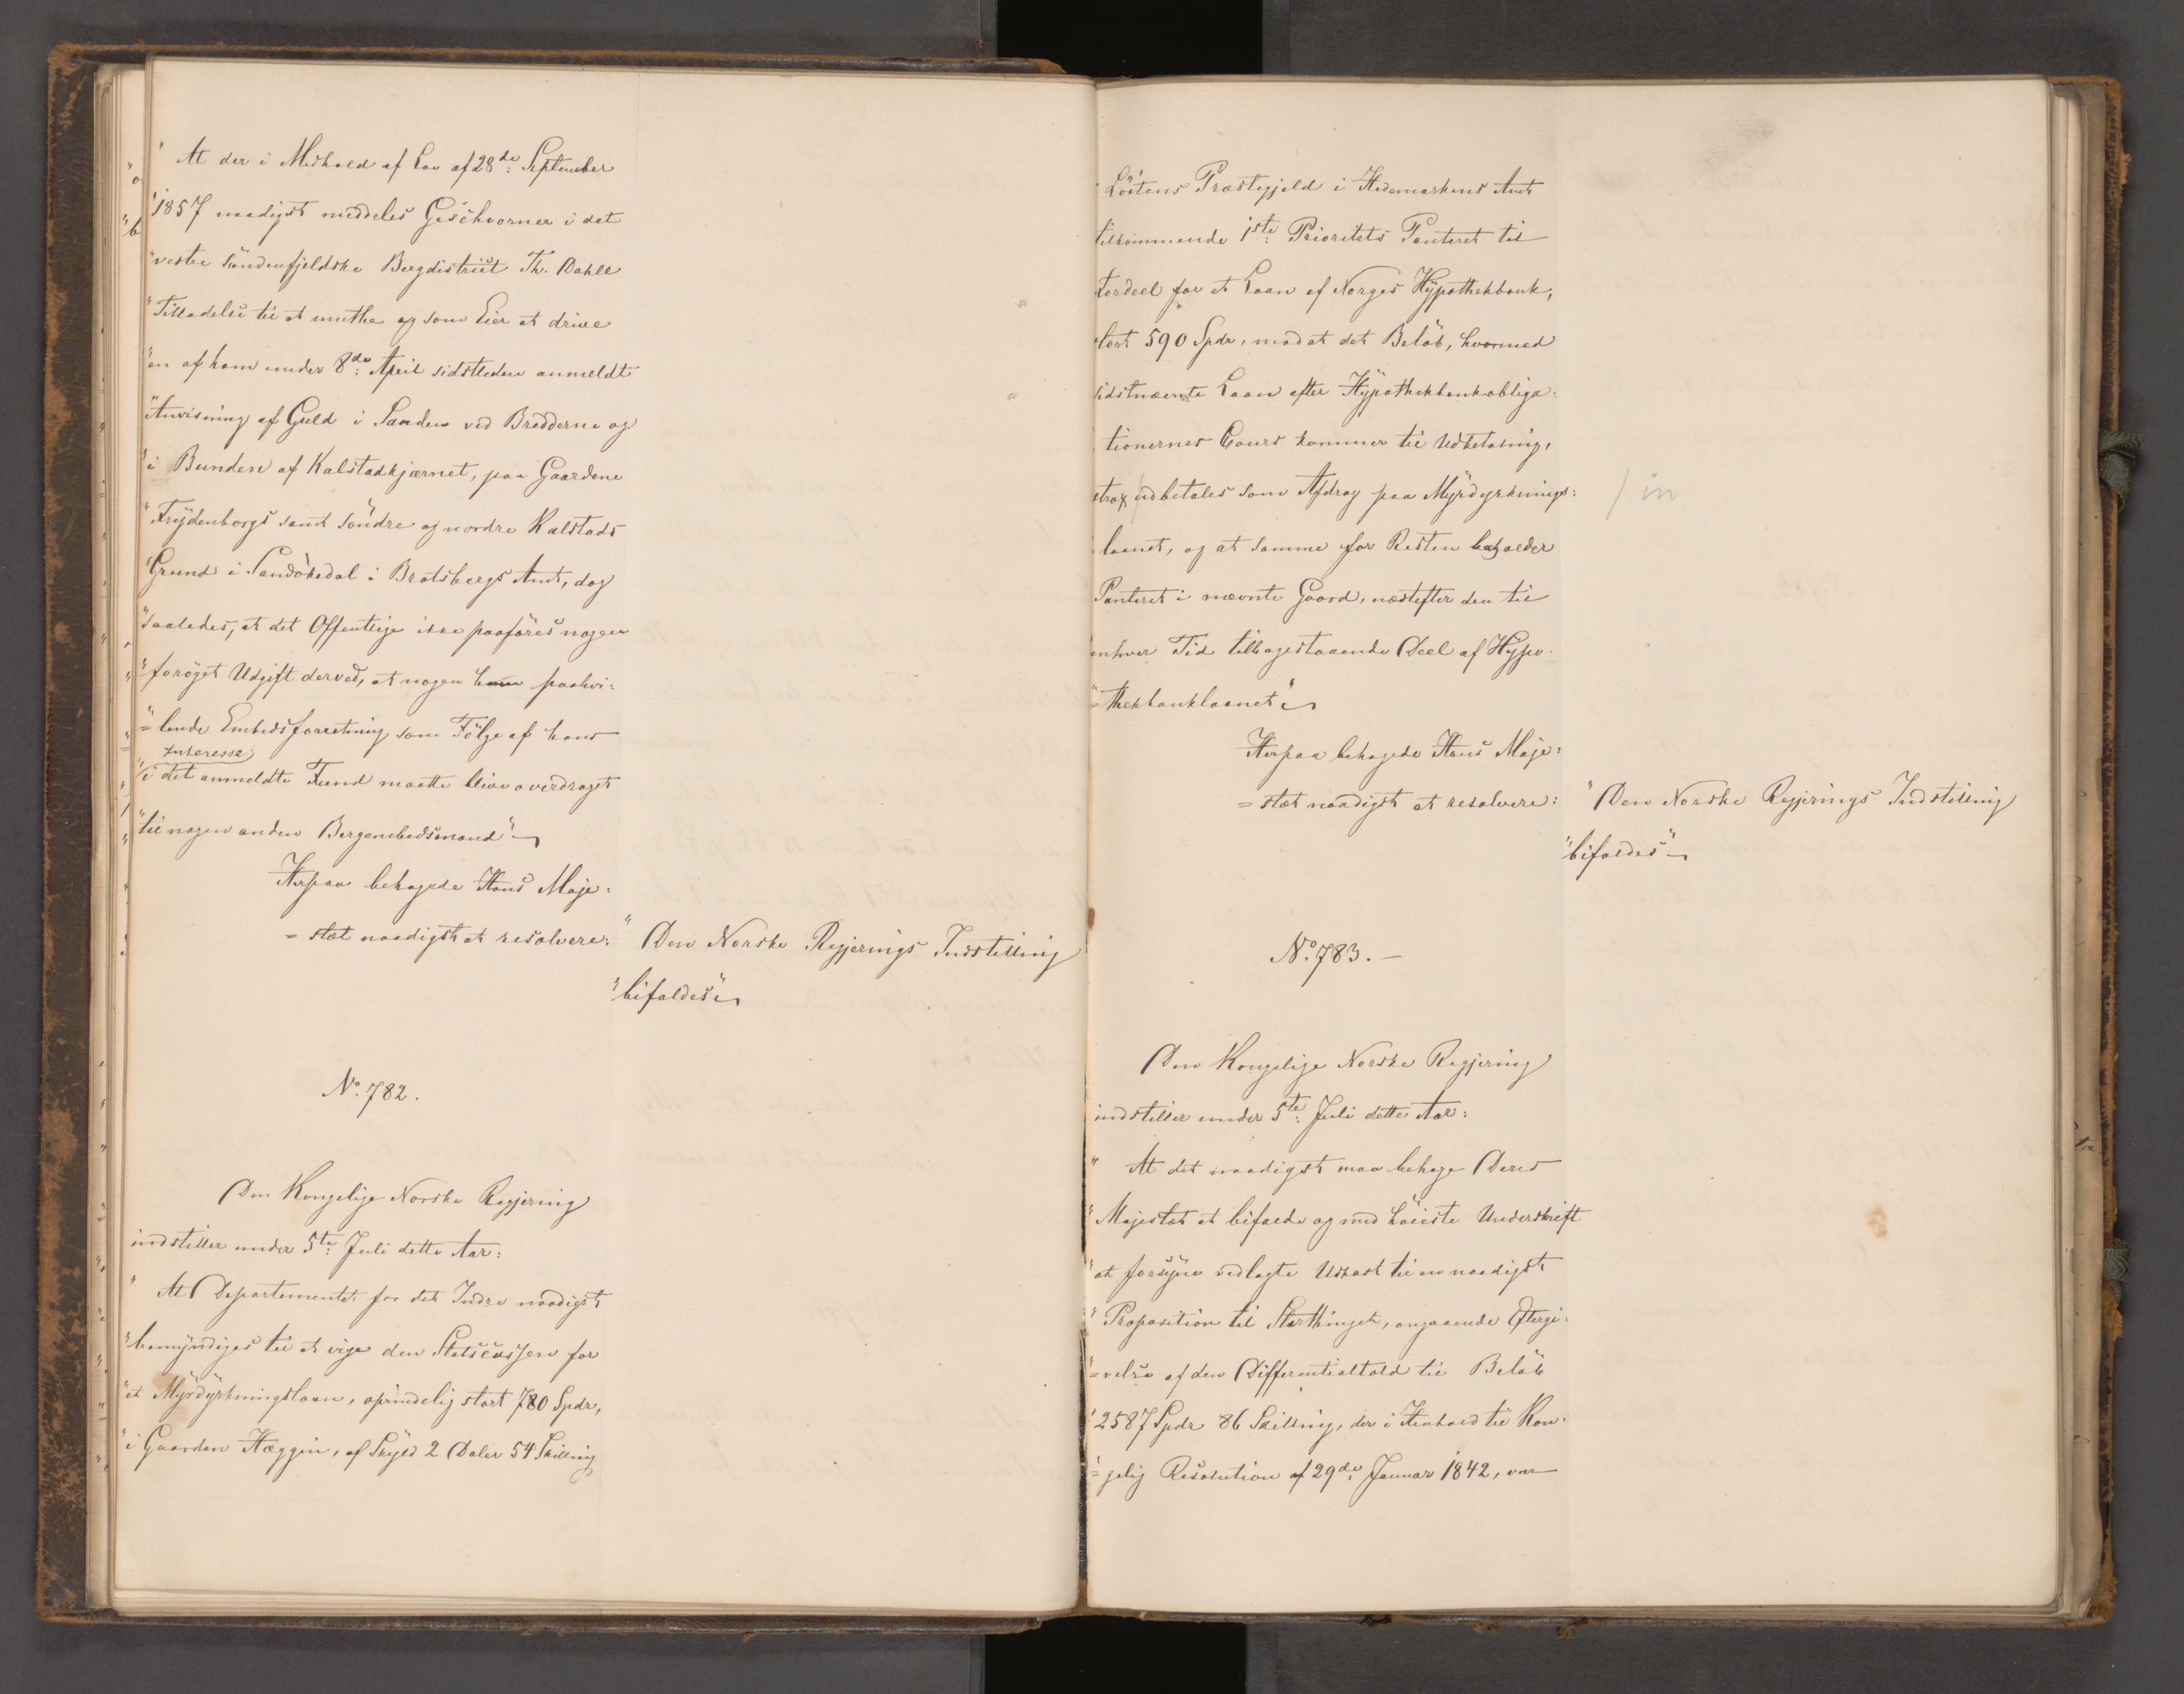 " At der i Medhold af Lov af 28de September
"1857 naadigst meddeles Geschvorner i det
"vestre söndenfjeldske Bergdistrict Th. Dahll
"Tilladelse til at muthe og som Eier at drive
"en af ham under 8de April sidstleden anmeldt
"Anvisning af Guld i Sanden ved Bredderne og
"i Bunden af Kalstadkjærnet, paa Gaardene
"Frydenborgs samt söndre og nordre Kalstads
"Grund i Sandökedal i Bratsbergs Amt, dog
"saaledes, at det Offentlige ikke paaföres nogen
"foröget Udgift derved, at nogen ham paahvi=
"=lende Embedsforretning som Fölge af hans
Interesse
"i det anmeldte Fund maatte blive overdraget
"til nogen anden Bergembedsmand"
Herpaa behagede Hans Maje=
=stæt naadigst at resolvere: " Den Norske Regjerings Indstilling
"bifaldes"
No. 782.
Den Kongelige Norske Regjering
indstiller under 5te Juli dette Aar:
" At Departementet for det Indre naadigst
"bemyndiges til at vige den Statscassen for
"et Myrdyrkningslaan, oprindelig stort 780 Spdr,
"i Gaarden Hæggin, af Skyld 2 Daler 54 Skilling
Löitens Præstegjeld i Hedemarkens Amt
tilkommende 1ste Prioritets Panteret til
Fordeel for et Laan af Norges Hypothekbank,
stort 590 Spdr, mod at det Belöb, hvormed
sidstnævnte Laan efter Hypothekbankobliga=
tionernes Cours kommer til Udbetaling,
strax / udbetales som Afdrag paa Myrdyrknings= / in
laanet, og at samme for Resten beholder
Panteret i nævnte Gaard, næstefter den til
enhver Tid tilbagestaaende Deel af Hypo=
"=thekbanklaanet"
Herpaa behagede Hans Maje=
=stæt naadigst at resolvere: " Den Norske Regjerings Indstilling
"bifaldes"
No. 783.
Den Kongelige Norske Regjering
indstiller under 5te Juli dette Aar:
" At det naadigst maa behage Deres
"Majestæt at bifalde og med höieste Underskrift
"at forsyne vedlagte Udkast til en naadigst
"Proposition til Storthinget, angaaende Eftergi=
"=velse af den Differentialtold til Belöb
"2587 Spdr 86 Skilling, der i Henhold til Kon=
"=gelig Resolution af 29de Januar 1842, var